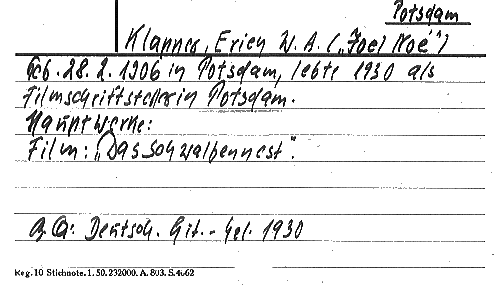 Potsdam
Klanner, Erich W. A. („Joel Noé")
Geb. 28. 2. 1906 in Potsdam, lebte 1930 als
Filmschriftsteller in Potsdam.
Hauptwerke:
Film: „Das Schwalbennest".
Qu: Deutsch. Lit. - Kal. 1930
Reg. 10 Stichnote. 1. 50. 232000. A. 803. S. 4062